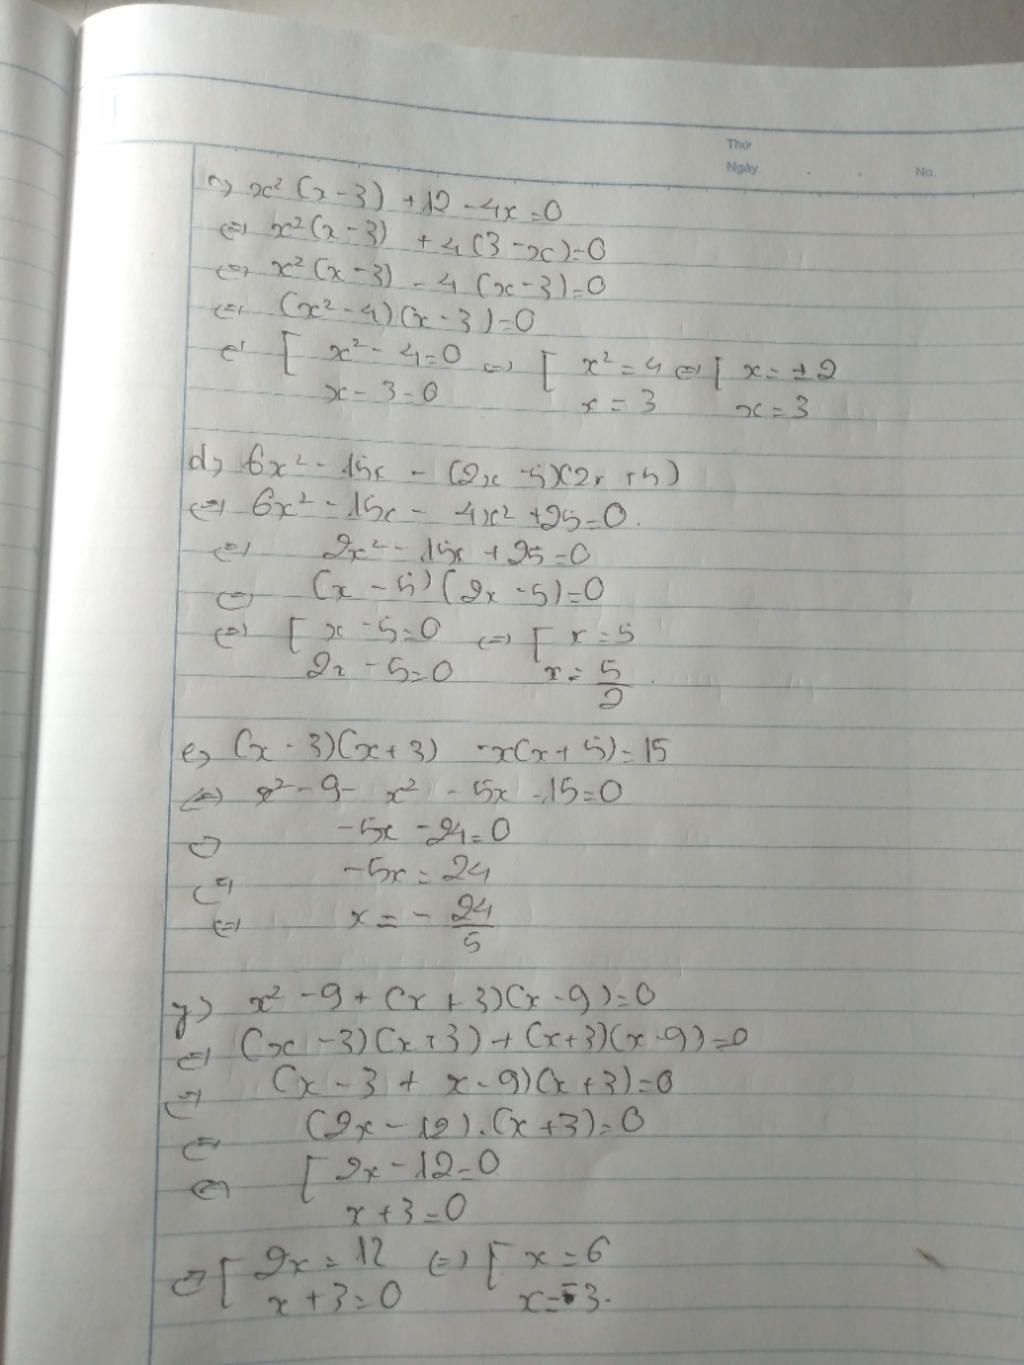 Thứ
Ngày . . No.
c) x² (x - 3) + 12 - 4x = 0
⇔ x² (x - 3) + 4 (3 - x) = 0
⇔ x² (x - 3) - 4 (x - 3) = 0
⇔ (x² - 4) (x - 3) = 0
⇔ [ x² - 4 = 0 ⇔ [ x² = 4 ⇔ [ x = ±2
x - 3 = 0 x = 3 x = 3
d) 6x² - 15x - (2x - 5)(2x + 5)
⇔ 6x² - 15x - 4x² + 25 = 0.
⇔ 2x² - 15x + 25 = 0
⇔ (x - 5) (2x - 5) = 0
⇔ [ x - 5 = 0 ⇔ [ x = 5
2x - 5 = 0 x = 5/2.
e) (x - 3)(x + 3) - x(x + 5) = 15
⇔ x² - 9 - x² - 5x - 15 = 0
⇔ -5x - 24 = 0
⇔ -5x = 24
⇔ x = - 24/5
y) x² - 9 + (x + 3)(x - 9) = 0
⇔ (x - 3)(x + 3) + (x + 3)(x - 9) = 0
⇔ (x - 3 + x - 9)(x + 3) = 0
⇔ (2x - 12).(x + 3) = 0
⇔ [ 2x - 12 = 0
x + 3 = 0
⇔ [ 2x = 12 ⇔ [ x = 6
x + 3 = 0 x = -3.